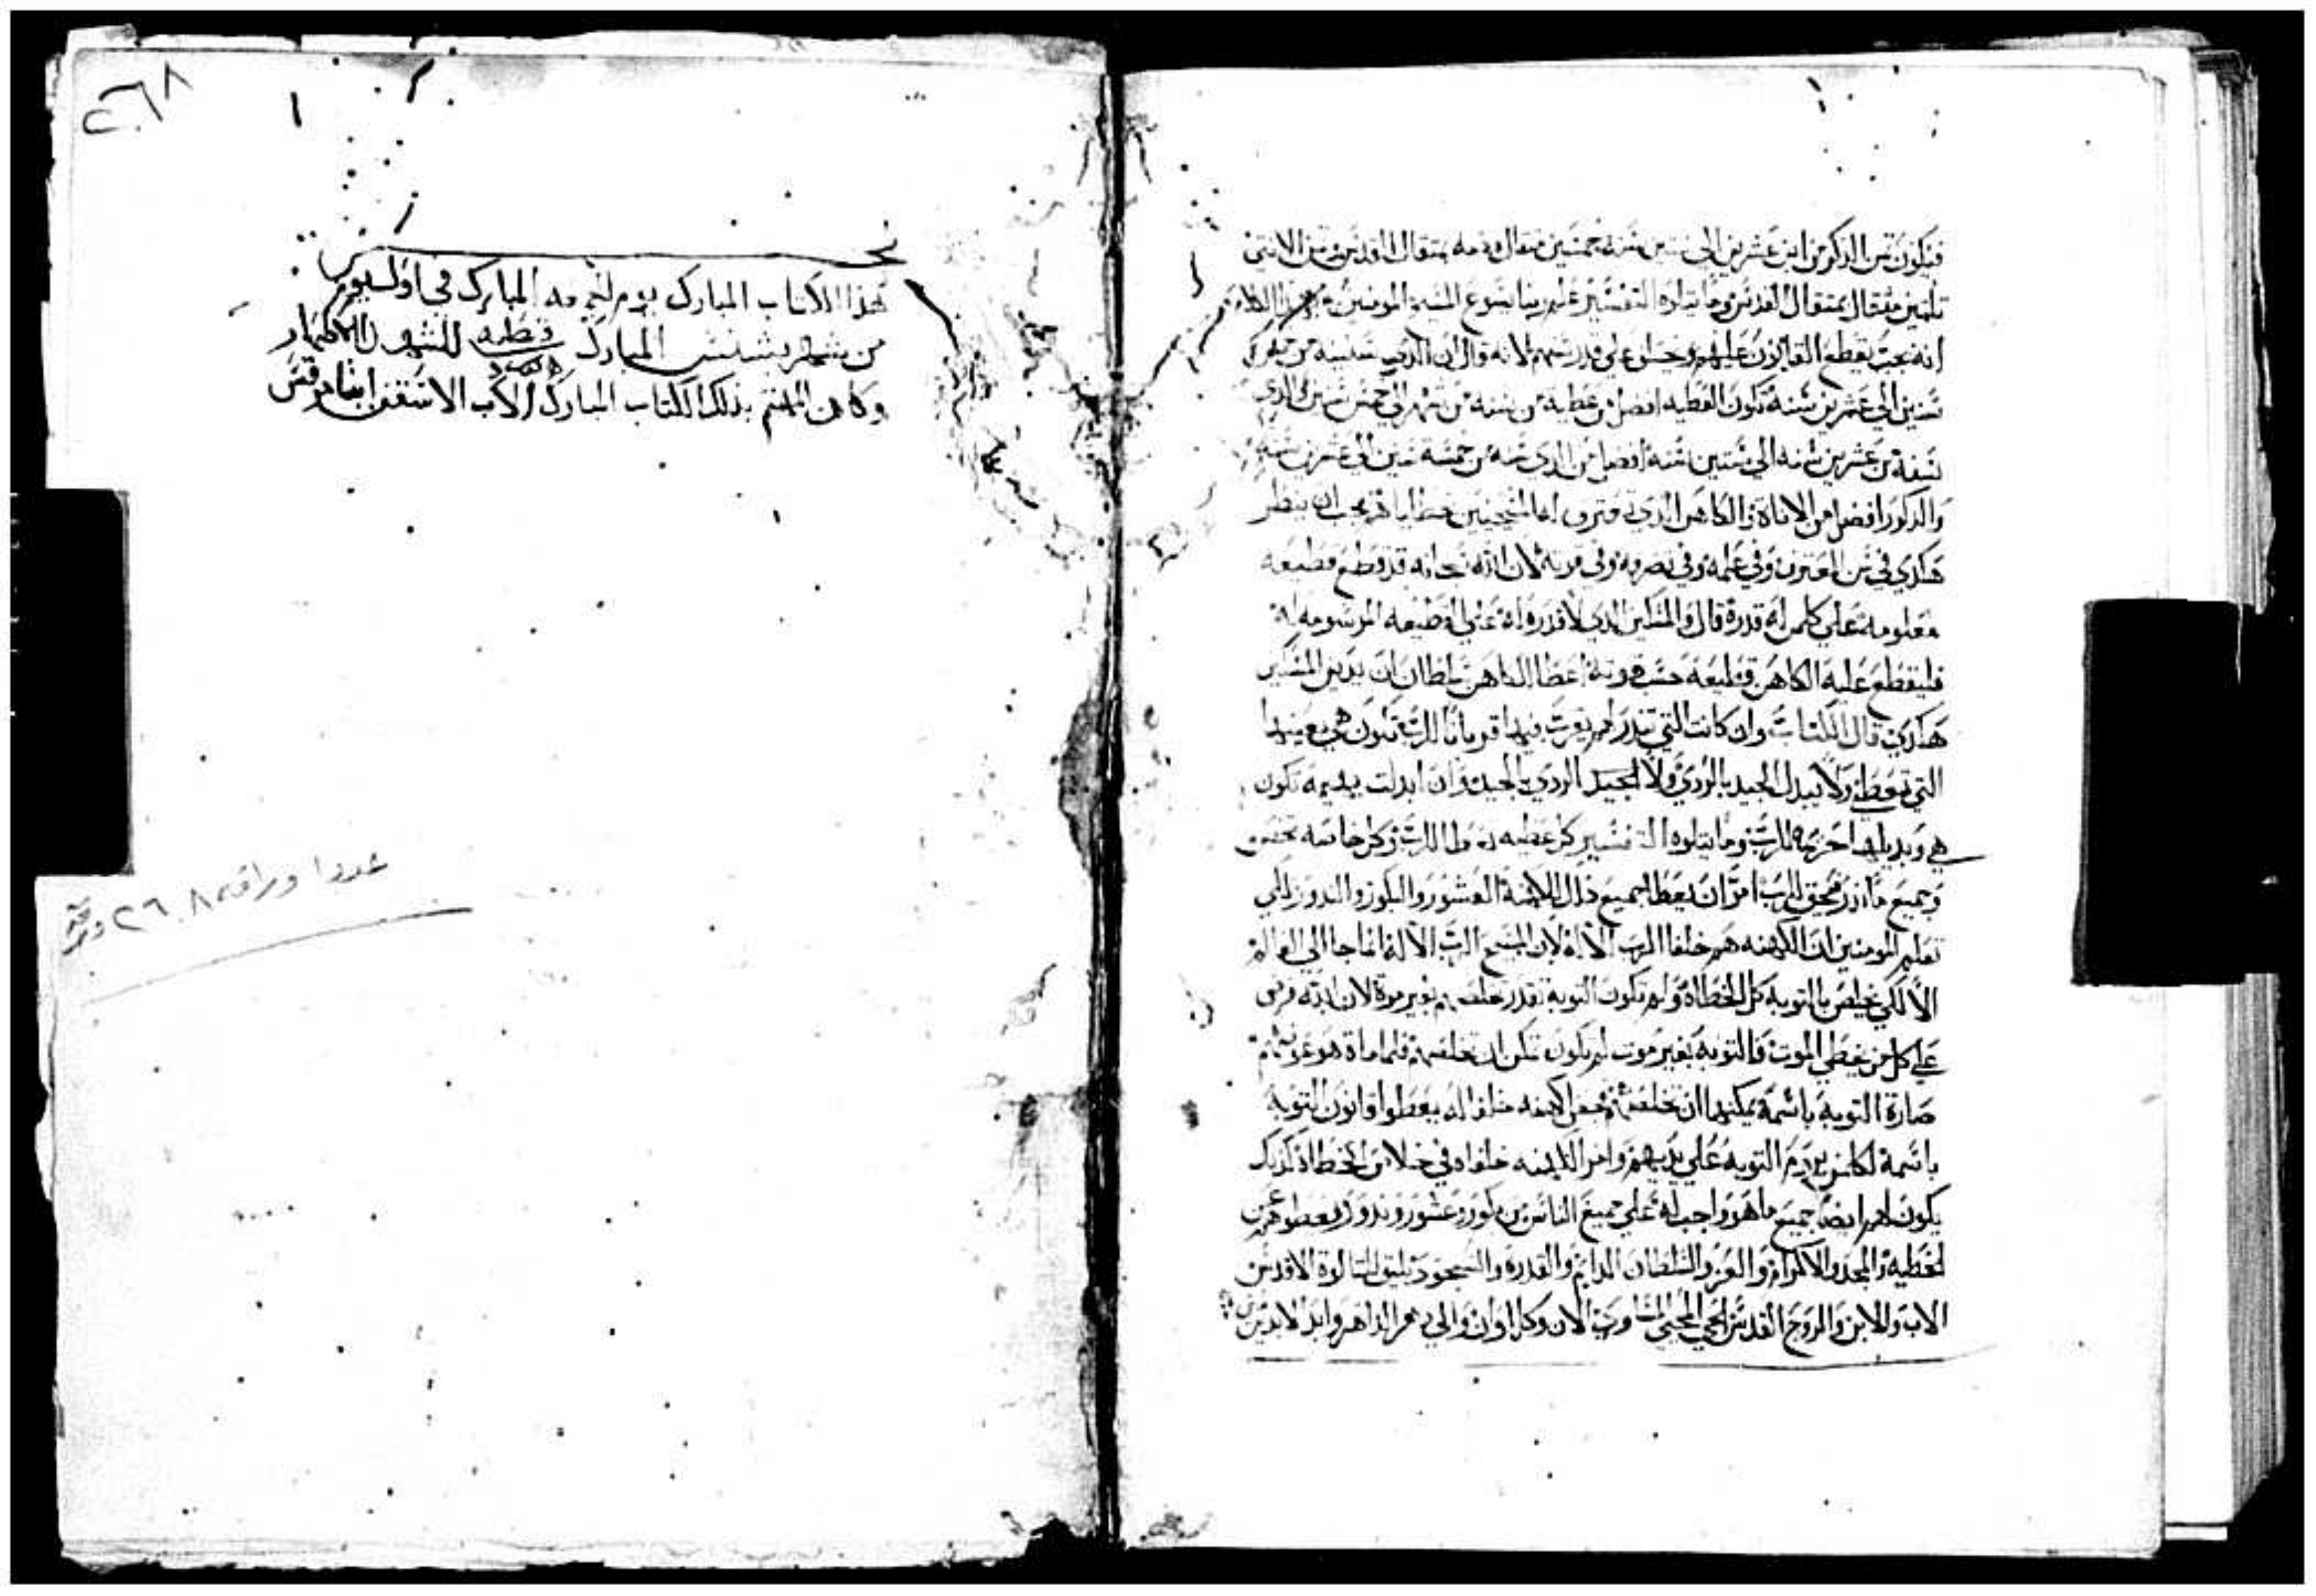 فيكون ثمن الذكر من ابن عشرين الي ستين سنه خمسين مثقال فضه بمثقال القدس وثمن الانتي
تلتين مثقال بمثقال القدس وما يتلوه التفسير علم ربنا يسوع المسيح المومنين
انه يجب يقطع القانون عليهم وحسلو علي قدر سنهم لانه قال ان الذي سنينه من
سنين الي عشرين سنه تكون العطيه افضل من عطية من سنه من شهر الي خمس سنين والدي
سنه من عشرين سنه الي ستين سنه افضل من الدي سنه من خمسة سنين الي عشرين سنه
والدكور افضل من الاناة والكاهن الدي تعترف لها المسيحيين خطاياهم يجب ان ينظر
هكدي في سن المعترف وفي علمه وفي تصرفه وفي قوته لان الله سبحانه قد قطع قطيعه
معلومه علي كلمن له قدرة قال والمسكين الدي لا قدرة له علي القطيعه المرسومه له
فليقطع عليه الكاهن قطيعه حسب قوته اعطا الكاهن سلطان ان يدين المسكين
هكدي قال الكتاب وان كانت التي تندر لهم يقرب فيها قربانا للرب تكون هي بعينها
التي تعطي ولا يبدل الجيد بالردي ولا الجيد الردي بالجيد وان ابدلت بهيمه تكون
هي وبديلها احزمه للرب وما يتلوه التفسير كل عطيه تعطا للرب وكل خاصه تختص
وجميع ما ندر بحق الرب امر ان يعطا جميع ذلك للكهنة العشور والبكور والندور لكي
تعلم المومنين ان الكهنه هم خلفا الرب الاله لان المسيح الرب الاله انما جا الي العالم
الا لكي يخلص بالتوبه كل الخطاة ولم تكون التوبة تقدر تخلصهم بغير موته لان الله فرض
علي كل من يخطي الموت فالتوبه بغير موت لم تكون تمكن ان تخلصهم فلما ماة هو عوضهم
صارة التوبة باسمه يمكنها ان تخلصهم وجعل الكهنه خلفا له يعطوا قانون التوبة
باسمه لكلمن يروم التوبه علي يديهم وامر الكهنه خلفاه في خلاص الخطاة كدلك
يكون لهم ايضا جميع ما هو واجب له علي جميع الناس من بكور وعشور وندور يعطوهم
لعطيه والمجد والاكرام والعز والسلطان الدايم والقدرة والسجود يليق للتالوة الاقدس
الاب والابن والروح القدس المحي المساوي الان وكل اوان والي دهر الداهر وابد الابدين
٢٦٨
نجـــز
هذا الكتاب المبارك يوم الجمعه المبارك في اول يوم
من شهر بشنس المبارك قبطيه للشهدا الاطهار
وكان المهتم بذلك الكتاب المبارك الاب الاسقف انبا مرقس
عدد اوراقه ٢٦٨ ورقة